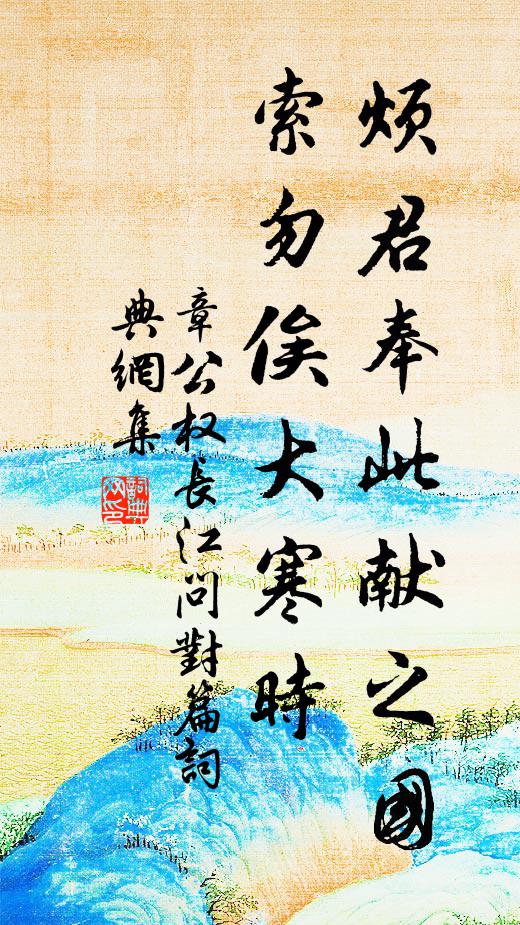 烦君奉此献之國
索勿俟大寒時
章公权長江问對篇詞
典網集